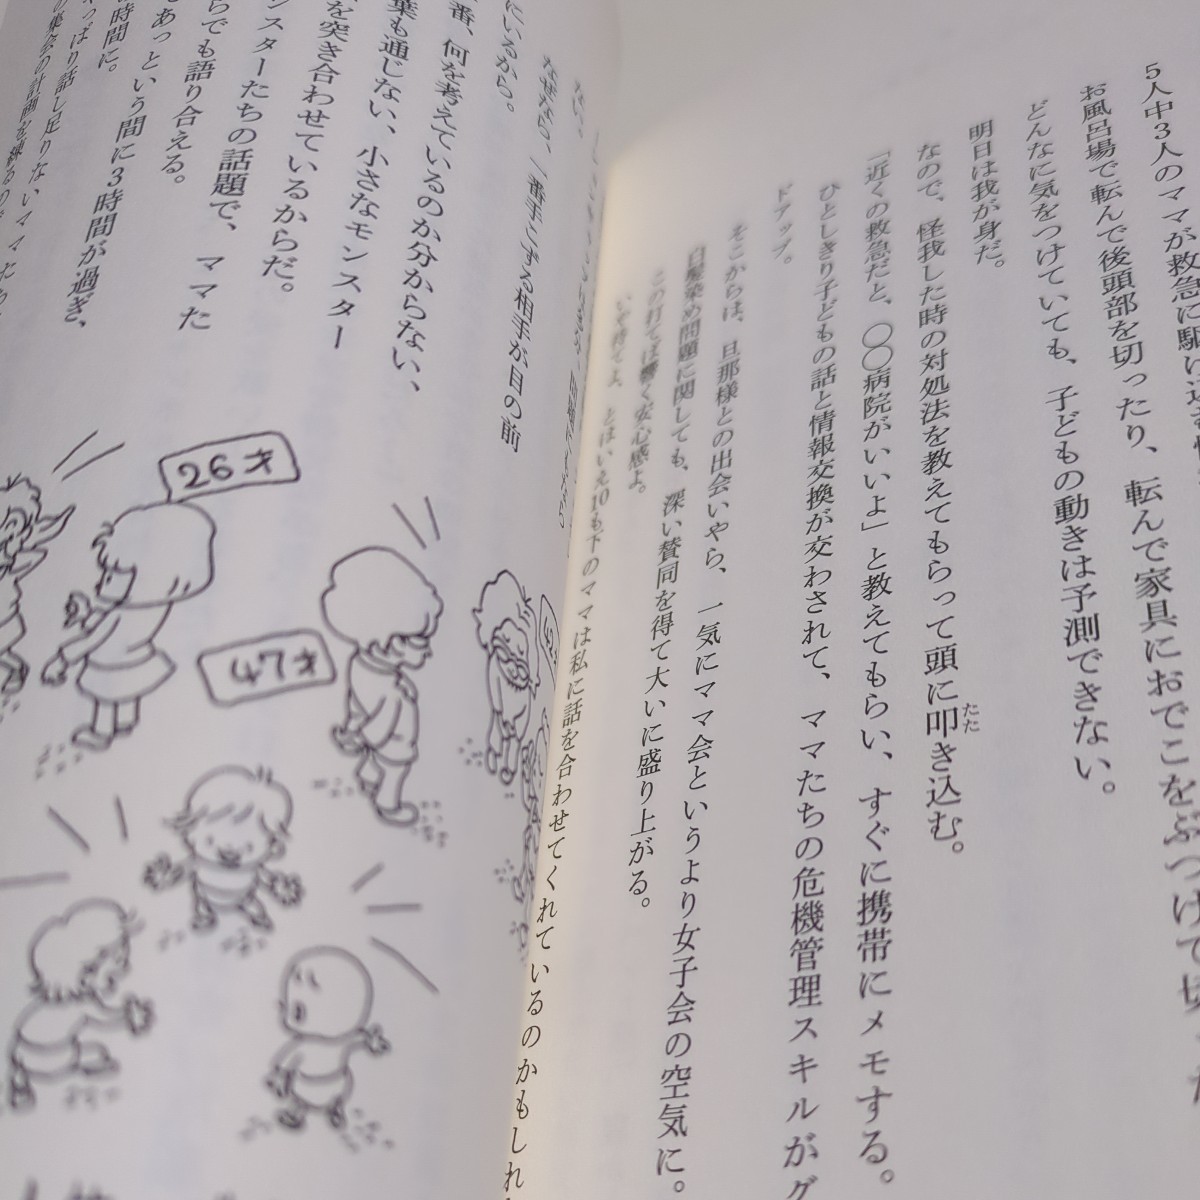 5人中3人のママが救急に駆け込む
お風呂場で転んで後頭部を切ったり、転んで家具におでこをぶつけて切った
どんなに気をつけていても、子どもの動きは予測できない。
明日は我が身だ。
なので、怪我した時の対処法を教えてもらって頭に叩き込む。
たた
「近くの救急だと、〇〇病院がいいよ」と教えてもらい、すぐに携帯にメモする。
ひとしきり子どもの話と情報交換が交わされて、ママたちの危機管理スキルがグ
ドアップ。
そこからは、旦那様との出会いやら、一気にママ会というより女子会の空気に。
白髪染め問題に関しても、深い賛同を得て大いに盛り上がる。
この打てば響く安心感よ。
いや待てよ、とはいえ10も下のママは私に話を合わせてくれているのかもしれ
ない。
なぜなら、一番手こずる相手が目の前
にいるから。
番、何を考えているのか分からない、
葉も通じない、小さなモンスター
を突き合わせているからだ。
ンスターたちの話題で、ママた
らでも語り合える。
あっという間に3時間が過ぎ、
時間に。
っぱり話し足りないママたち
の集会の計画を練るので
26才
47才